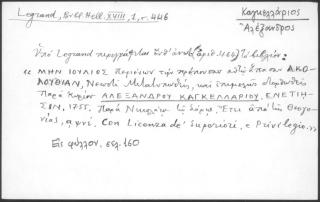 Legrand, Bibl. Hell. XVIII, 1, σ. 446
Καγκελλάριος
Ἀλέξανδρος
Ὑπὸ Legrand περιγράφεται ὑπ' ἀριθ. τὸ βιβλίον:
" ΜΗΝ ΙΟΥΛΙΟΣ Περιέχων τὴν πρέπουσαν αὐτῷ ἅπασαν ΑΚΟ-
ΛΟΥΘΙΑΝ, Νεωστὶ Μετατυπωθεὶς, καὶ ἐπιμελῶς διορθωθεὶς
Παρὰ Κυρίου ΑΛΕΞΑΝΔΡΟΥ ΚΑΓΚΕΛΛΑΡΙΟΥ. ΕΝΕΤΙΗ-
ΣΙΝ, 1755. Παρὰ Νικολάῳ τῷ Σάρῳ. Ἔτει ἀπὸ τῆς Θεογο-
νίας, αψνέ. Con Licenza de' Superiori, e Privilegio.»
Εἰς φύλλον, σελ. 160